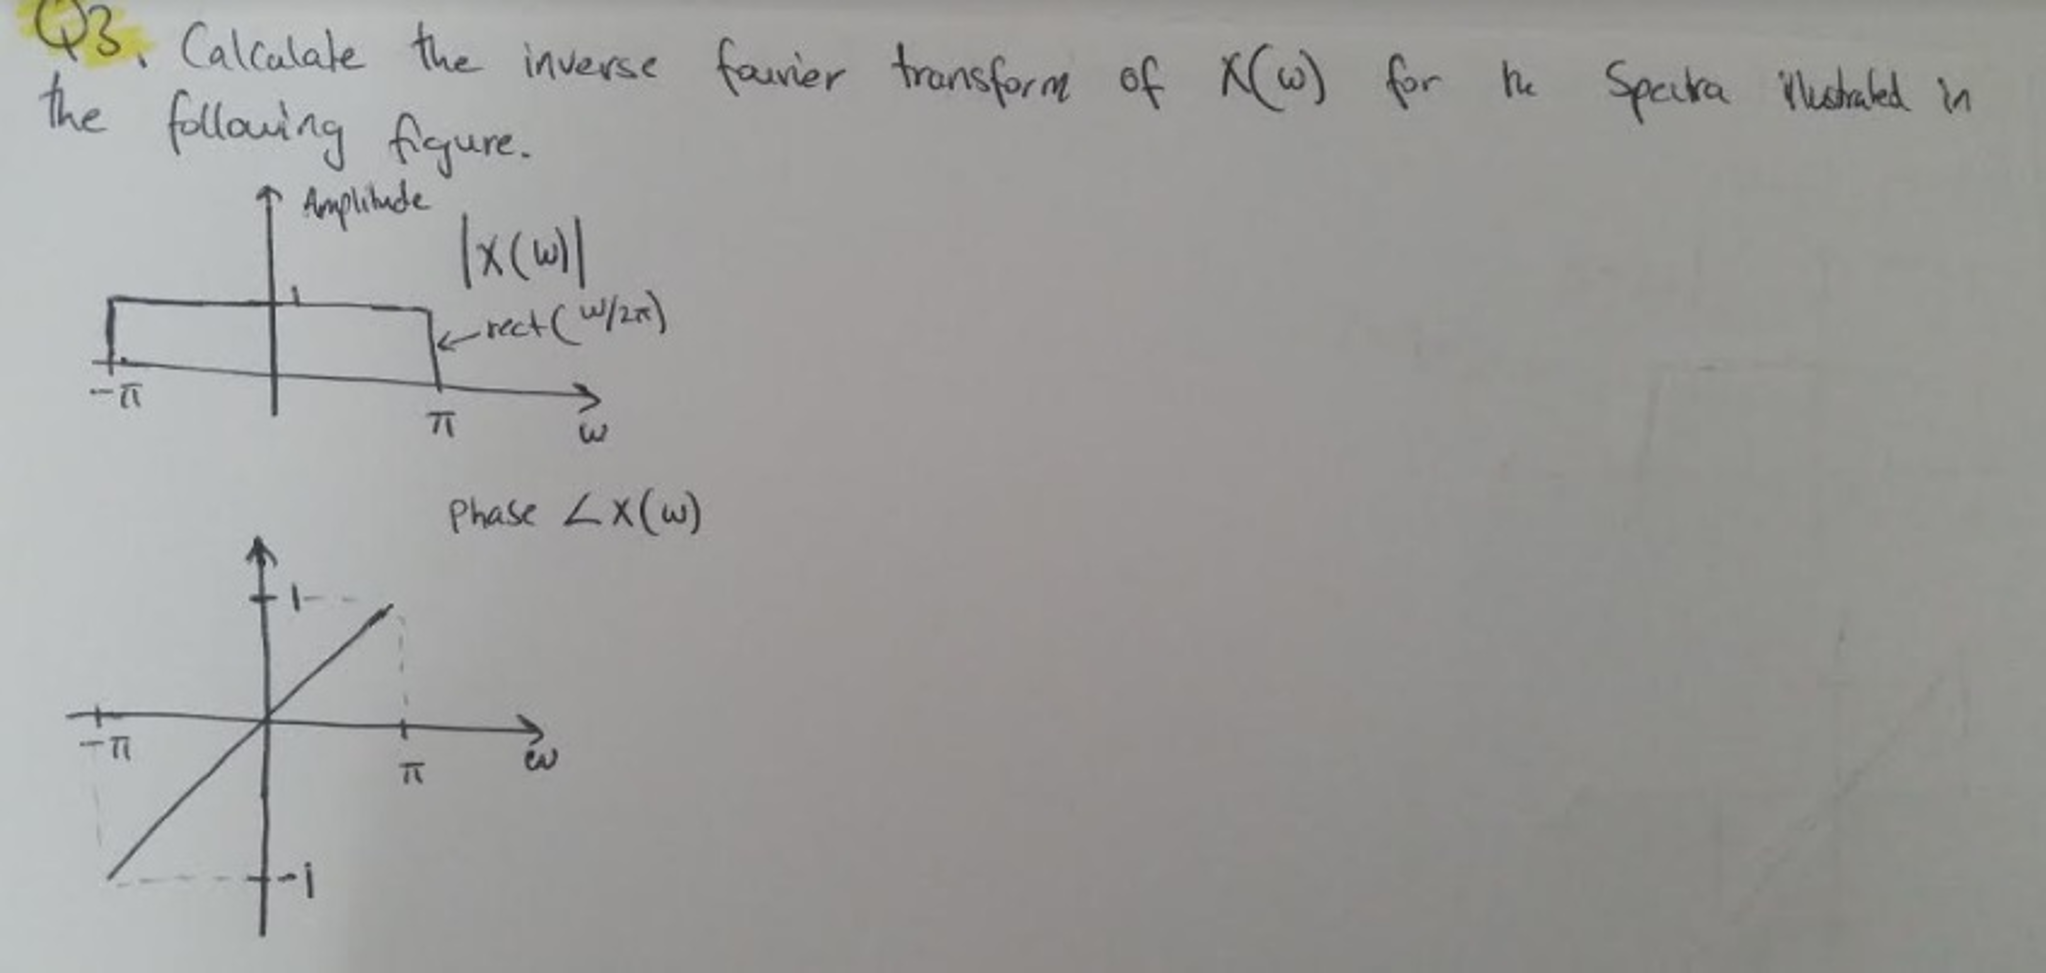 Q3. Calculate the inverse fourier transform of X(ω) for the Spectra illustrated in
the following figure.
Amplitude
|X(ω)|
1
rect(ω/2π)
-π
π
ω
Phase ∠X(ω)
1
-π
π
ω
-1